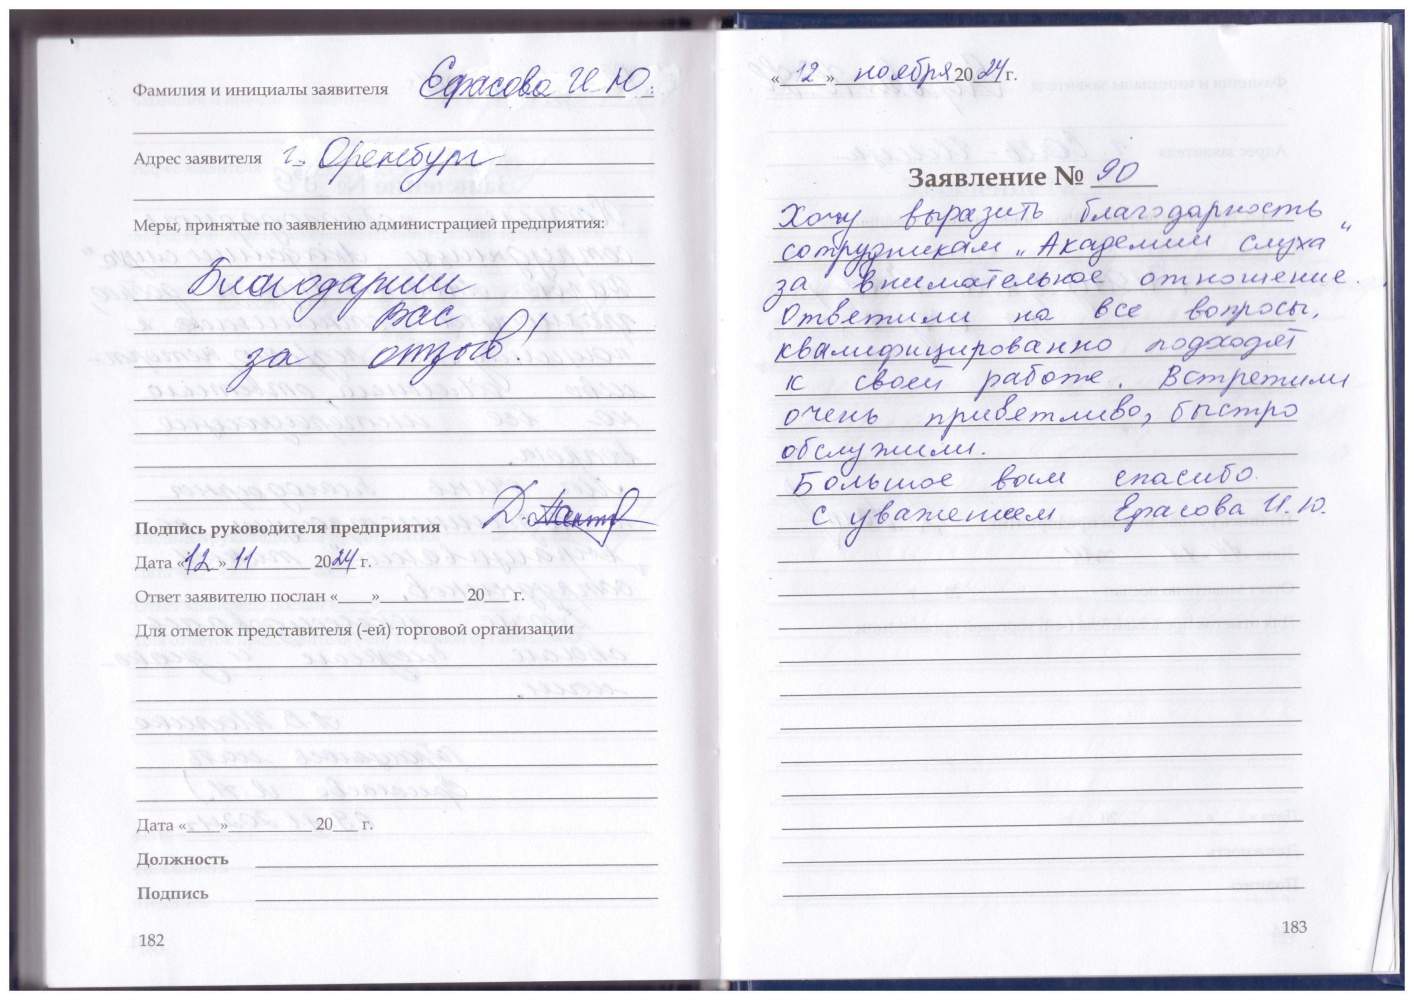 Фамилия и инициалы заявителя Ефасова И.Ю.
Адрес заявителя г. Оренбург
Меры, принятые по заявлению администрацией предприятия:
Благодарим
Вас
за отзыв!
Подпись руководителя предприятия
Дата «12» 11 2024 г.
Ответ заявителю послан «____»__________ 20___ г.
Для отметок представителя (-ей) торговой организации
Дата «____»__________ 20___ г.
Должность
Подпись
182
«12» ноября 2024 г.
Заявление № 90
Хочу выразить благодарность
сотрудникам „Академии слуха"
за внимательное отношение.
Ответили на все вопросы,
квалифицированно подходят
к своей работе. Встретили
очень приветливо, быстро
обслужили.
Большое вам спасибо.
С уважением Ефасова И.Ю.
183